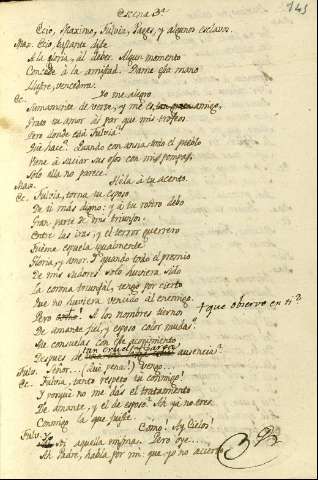 145
Escena 3ª
Ecio, Maximo, Fulvia, Pages, y algunos esclavos.
Max. Ecio, bastante diste
A la gloria, al deber. Algun momento
Concede à la amistad. Dame esa mano
Ilustre, vencedora.
Ec. Yo me alegro
Sumamente de verte, y me es amigo,
Grato tu amor ás por que mis trofeos
Pero donde está Fulvia?
Que hace? Quando con ansia todo el pueblo
Pone à saciar sus ojos con mis pompas,
Solo ella no parece.
Max. Hela à tu acento.
Ec. Fulvia, torna tu esposo
De ti más digno: y à tu retiro debo
Gran parte de mis triunfos.
Entre las iras, y el terror guerrero
Fuéme espuela igualmente
Gloria, y amor. Y quando todo el premio
De mis sudores solo huviera sido
La corona triunfal, tengo por cierto
Que no huviera vencido al enemigo.
Pero + que observo en ti?
A los nombres tiernos
De amante fiel, y esposo color mudas?
Me consuelas con ese
Despues de tan cruel y larga ausencia?
Fulv. Señor... (Que pena!) vengo...
Ec. Fulvia, tanto respeto tu conmigo!
Y porqué no me dás el tratamiento
De amante, y el de esposo? Ah ya no eres
Conmigo la que fuiste.
Fulv. Como! Ay Cielos!
Yo aquella misma. Pero oye...
Ah Padre, habla por mi: que yo no acierto.